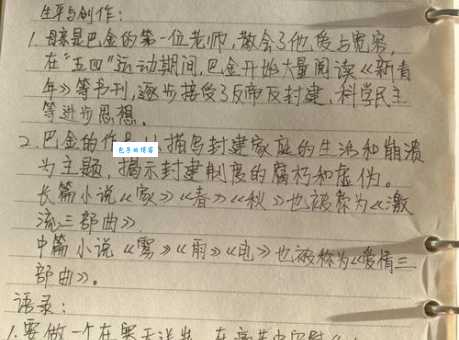 生平与创作:
1.母亲是巴金的第一位老师,教会了他爱与宽容,
在"五四"运动期间,巴金开始大量阅读《新青
年》等书刊,逐步接受了反帝反封建、科学民主
等进步思想。
2.巴金的作 描写封建家庭的生活和崩溃
包子的博客
为主题,揭示封建制度的腐朽和虚伪。
长篇小说《家》《春》《秋》也被称为《激
流三部曲》
中篇小说《雾》《雨》《电》也被称为《爱情三
部曲》。
语录:
1.要做一个在寒天送炭、在